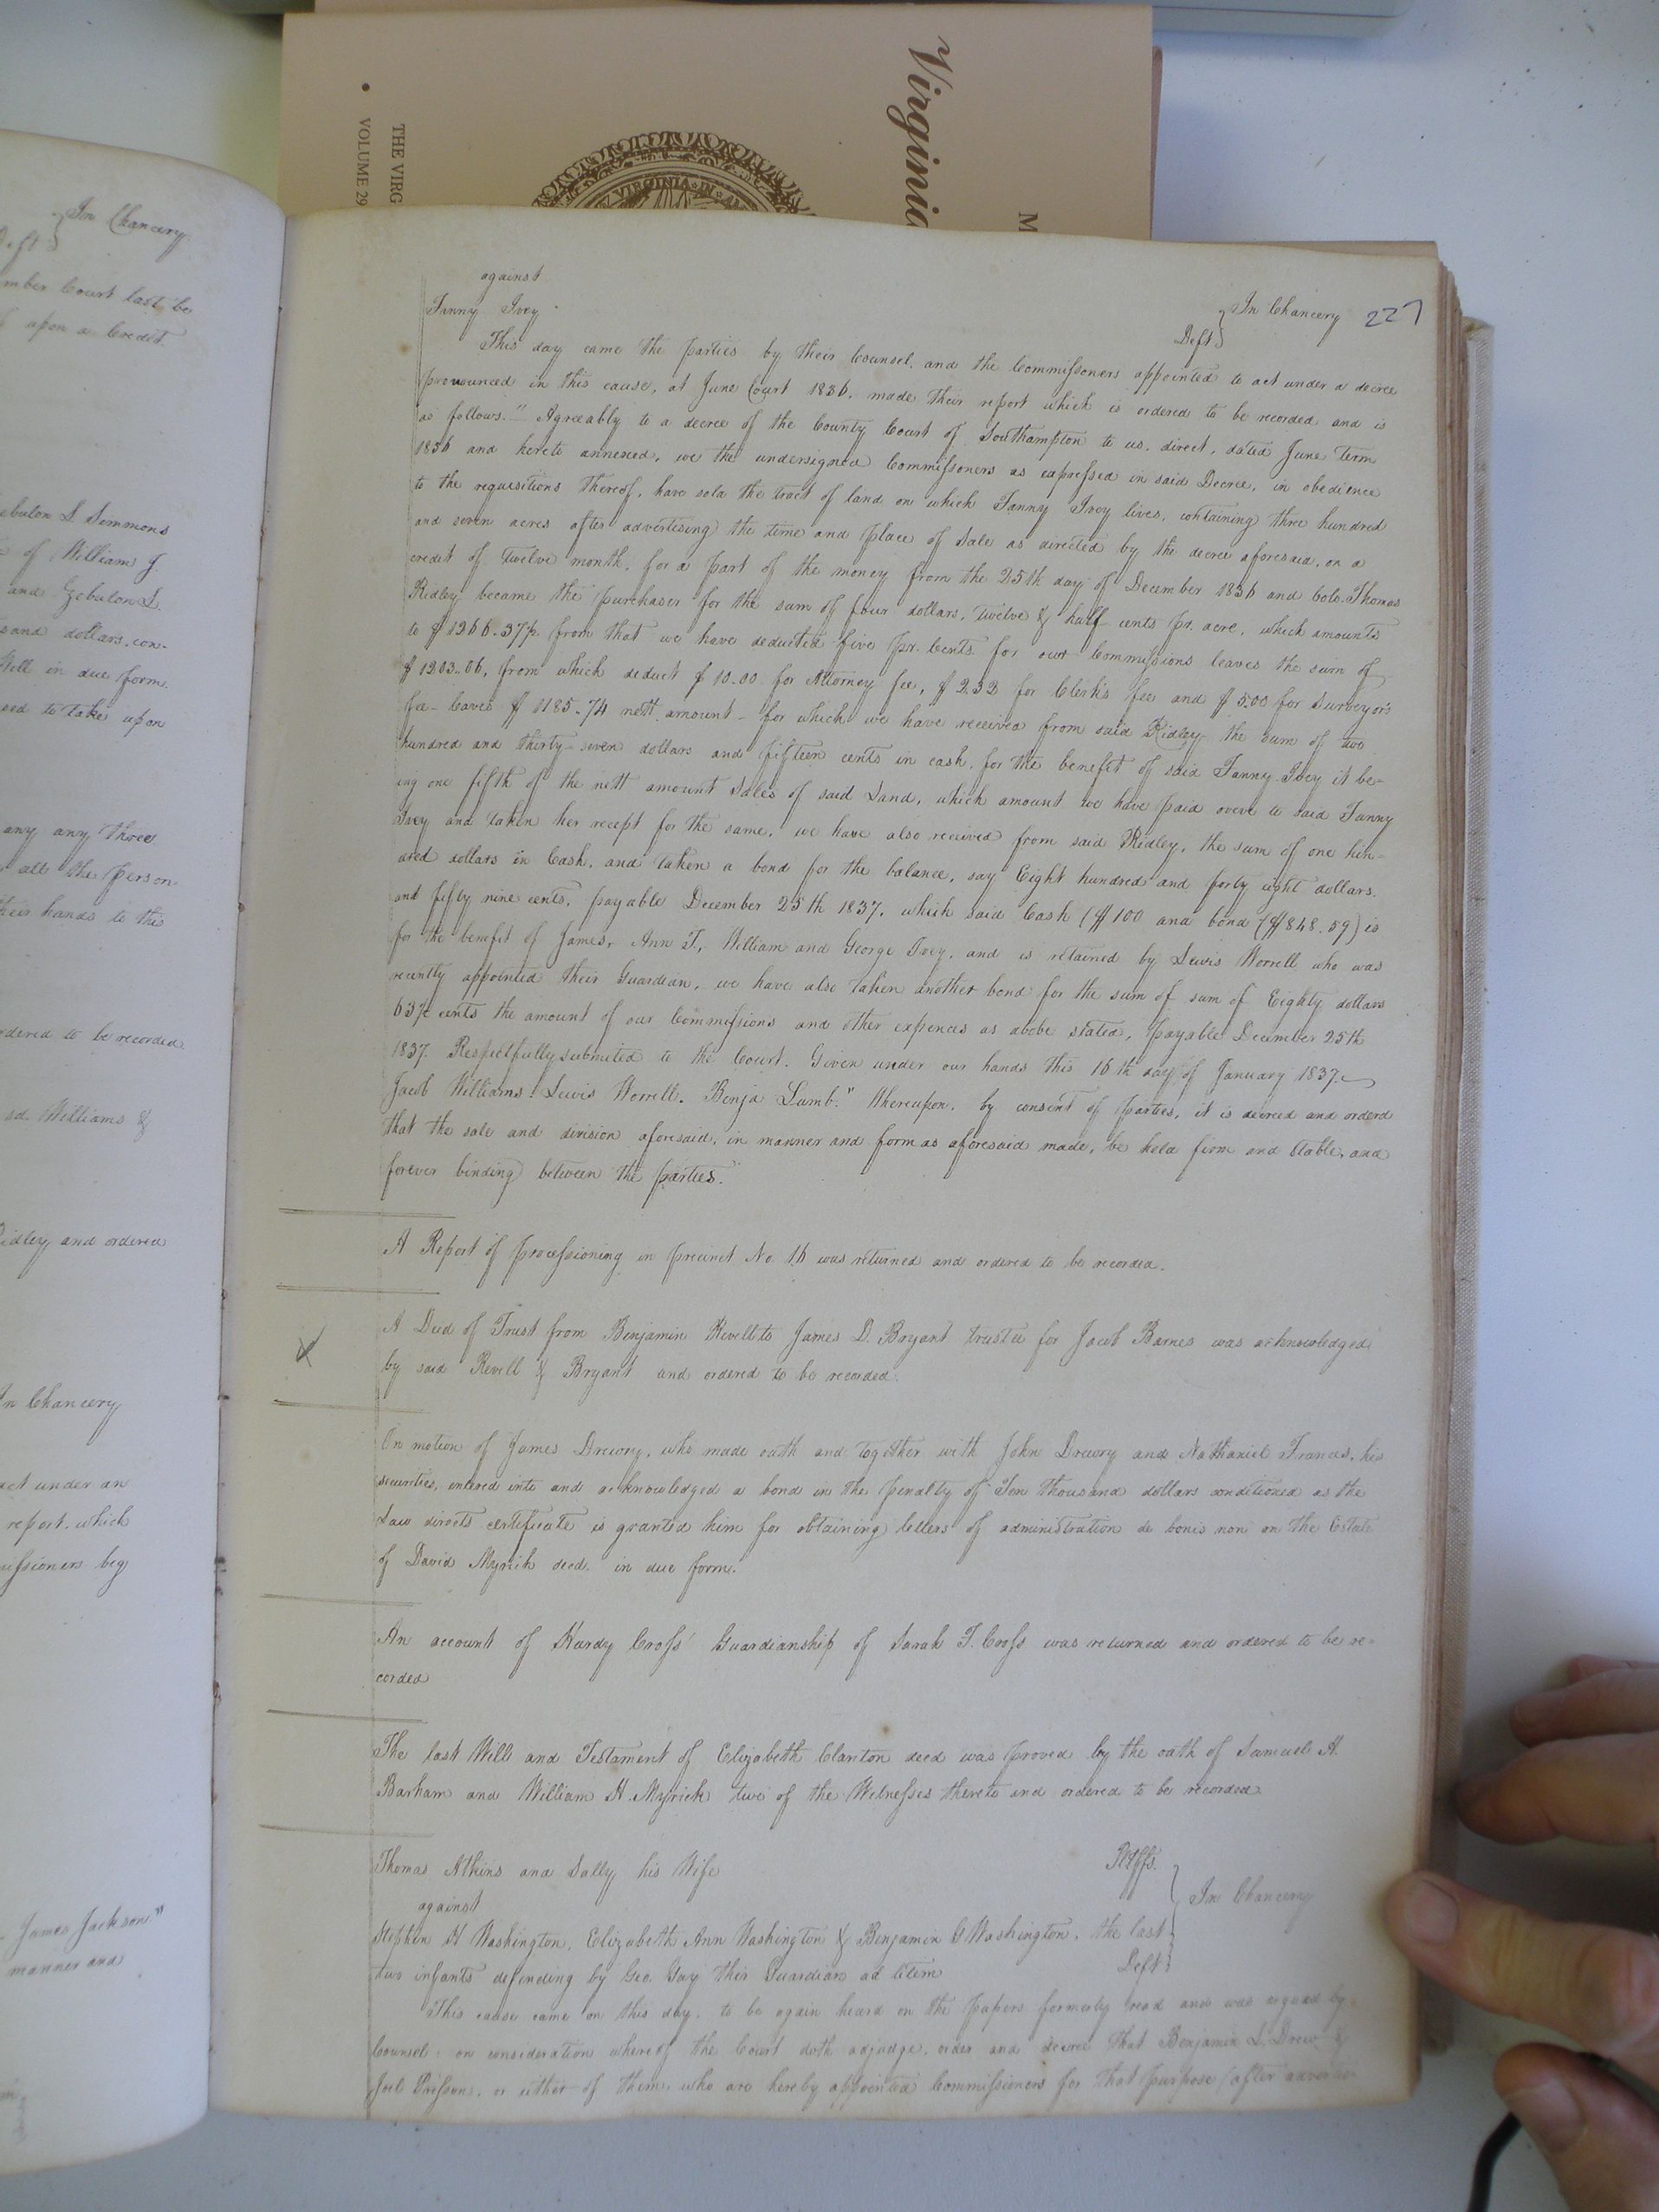 Virginia
M
THE VIRG
• VOLUME 29
VIRGINIA IN
In Chancery
Deft
mber Court last, be
upon a Credit
ebulon S Simmons
of William J
and Zebulon S.
sand dollars, con-
Will in due form.
sed to take upon
any any three
all the person
their hands to this
rdered to be recorded
sd. Williams &
idley and ordered
In Chancery
act under an
report, which
missioners beg
James Jackson"
manner and
227
against
Fanny Ivey
In Chancery
Deft
This day came the parties by their Counsel, and the Commissioners appointed to act under a decree
pronounced in this cause, at June Court 1836, made their report which is ordered to be recorded and is
as follows. "Agreeably to a decree of the County Court of Southampton to us, direct, dated June term
1836 and hereto annexed, we the undersigned Commissoners as expressed in said Decree, in obedience
to the requisitions thereof, have sold the tract of land on which Fanny Ivey lives, containing three hundred
and seven acres after advertising the time and place of Sale as directed by the decree aforesaid, on a
credit of twelve month, for a part of the money from the 25th day of December 1836 and Colo. Thomas
Ridley became the purchaser for the sum of four dollars, twelve & half cents pr. acre, which amounts
to $1266.37½ from that we have deducted five pr. Cents for our Commissions leaves the sum of
$1203.06, from which deduct $10.00 for Attorney fee, $2.32 for Clerk's fee and $5.00 for Surveyors
fee - leaves $1185.74 nett amount - for which we have received from said Ridley the sum of two
hundred and thirty-seven dollars and fifteen cents in cash, for the benefit of said Fanny Ivey it be-
ing one fifth of the nett amount Sales of said Land, which amount we have paid over to said Fanny
Ivey and taken her recept for the same, we have also received from said Ridley, the sum of one hun-
dred dollars in Cash, and taken a bond for the balance, say Eight hundred and forty eight dollars.
and fifty nine cents, payable December 25th 1837, which said Cash ($100 and bond ($848.59) is
for the benefit of James, Ann T., William and George Ivey, and is retained by Lewis Worrell who was
recently appointed their Guardian, we have also taken another bond for the sum of sum of Eighty dollars
63½ cents the amount of our Commissions and other expences as above stated, payable December 25th
1837. Respectfully submited to the Court. Given under our hands this 16th day of January 1837.
Jacob Williams. Lewis Worrell. Benja Lamb." Whereupon, by consent of parties, it is decreed and orderd
that the sale and division aforesaid, in manner and form as aforesaid made, be held firm and stable, and
forever binding between the parties.
A Report of processioning in precinct No. 16 was returned and ordered to be recorded.
A Deed of Trust from Benjamin Revell to James D. Bryant trustee for Jacob Barnes was acknowledged
by said Revell & Bryant and ordered to be recorded
On motion of James Drewry, who made oath and together with John Drewry and Nathaniel Francis, his
securities, entered into and acknowledged a bond in the penalty of Ten thousand dollars conditioned as the
Law directs certificate is granted him for obtaining letters of administration de bonis non on the Estate
of David Myrick decd. in due form.
An account of Hardy Cross' Guardianship of Sarah T. Cross was returned and ordered to be re-
corded
The last Will and Testament of Elizabeth Clanton decd was proved by the oath of Samuel A.
Barham and William H. Myrick two of the Witnesses thereto and ordered to be recorded
Thomas Atkins and Sally his Wife
Pltffs.
against
In Chancery
Stephen H Washington, Elizabeth Ann Washington & Benjamin C Washington, the last
two infants defending by Geo. Gay their Guardian ad litem
Deft
This cause came on this day, to be again heard on the papers formerly read and was argued by
Counsel: on consideration whereof the Court doth adjudge, order and decree that Benjamin L. Drew &
Joel or either of them, who are hereby appointed Commissioners for that purpose (after